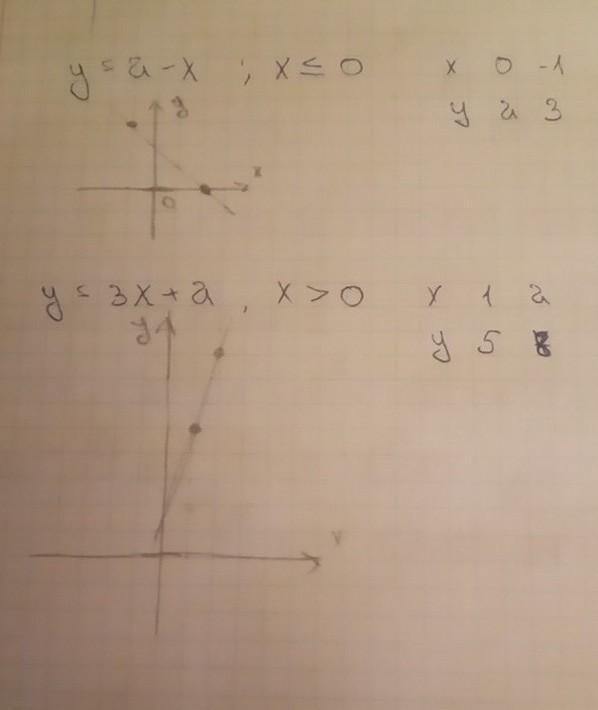 y = 2 - x ; x ≤ 0 x 0 -1
y 2 3
y
x
0
y = 3x + 2 , x > 0 x 1 2
y 5 8
y
x